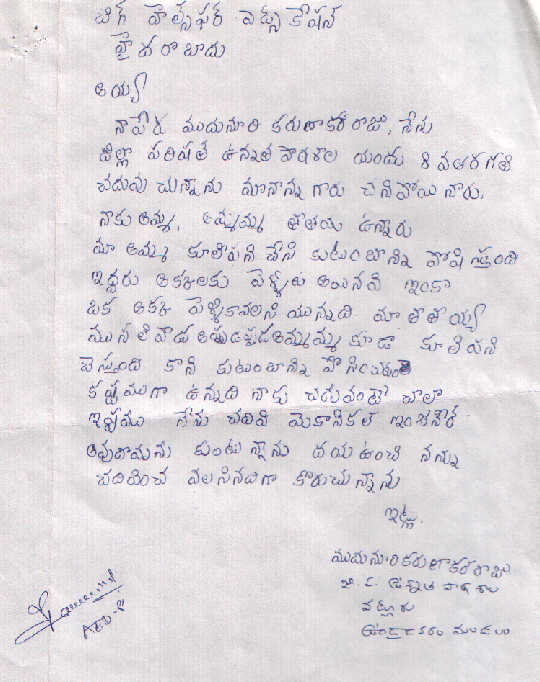 హైదరాబాదు
అయ్యా
నాపేరు ముదునూరి కరుణాకర రాజు, నేను
జిల్లా పరిషత్ ఉన్నత పాఠశాల యందు 8 వతరగతి
చదువు చున్నాను మానాన్న గారు చనిపోయినారు.
నాకు అమ్మ, అమ్మమ్మ తాతయ ఉన్నారు
మా అమ్మ కూలిపని చేసి కుటుంబాన్ని పోషిస్తుంది
ఇద్దరు అక్కలకు పెళ్ళిళ్లు అయినవి ఇంకా
ఒక అక్క పెళ్ళికావలసి యున్నది మా తాతయ్య
ముసలివాడు అమ్మమ్మ కూడా కూలిపని
చేస్తుంది కాని కుటుంబాన్ని పోసించుట
కష్టముగా ఉన్నది నాకు చదువంటే చాలా
ఇష్టము నేను చదివి మెకానికల్ ఇంజనీర్
అవుదామను కుంటున్నాను దయ ఉంచి నన్ను
చదివించ వలసినదిగా కోరుచున్నాను
ఇట్లు.
ముదునూరి కరుణాకర రాజు
జి.ప. ఉన్నత పాఠశాల
వట్లూరు
మండలం